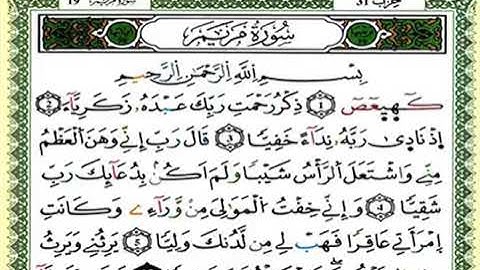 حزب 31
سورة مريم 19
سُورَةُ مَرْيَمَ
بِسْمِ اللَّهِ الرَّحْمَٰنِ الرَّحِيمِ
كٓهيعٓصٓ ١ ذِكْرُ رَحْمَتِ رَبِّكَ عَبْدَهُۥ زَكَرِيَّآءَ ٢
إِذْ نَادَىٰ رَبَّهُۥ نِدَآءً خَفِيًّا ٣ قَالَ رَبِّ إِنِّي وَهَنَ الْعَظْمُ
مِنِّي وَاشْتَعَلَ الرَّأْسُ شَيْبًا وَلَمْ أَكُنۢ بِدُعَآئِكَ رَبِّ
شَقِيًّا ٤ وَإِنِّي خِفْتُ الْمَوَٰلِيَ مِن وَّرَآءِي وَكَانَتِ
امْرَأَتِي عَاقِرًا فَهَبْ لِي مِن لَّدُنكَ وَلِيًّا ٥ يَرِثُنِي وَيَرِثُ